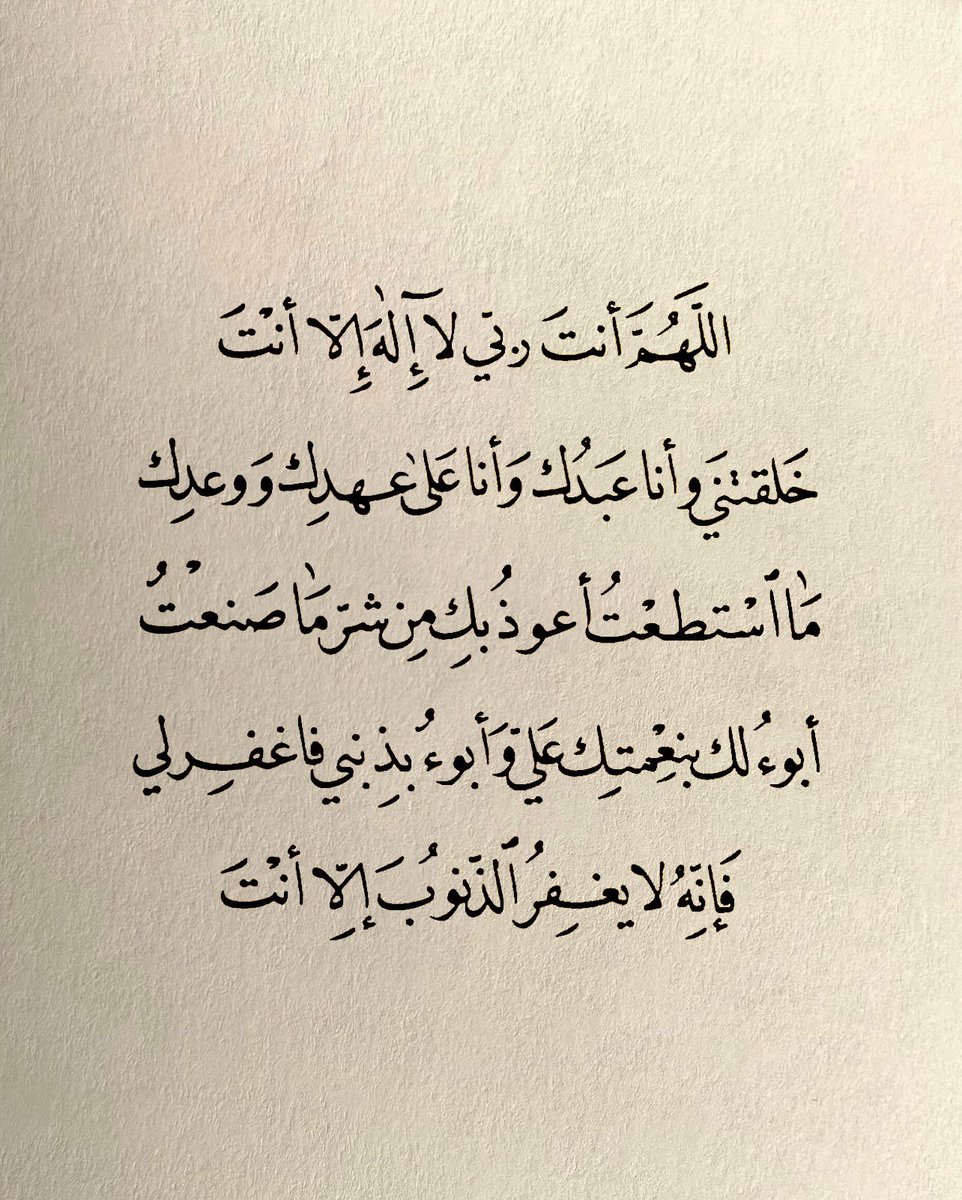 اللَّهُمَّ أنتَ ربّي لآ إِلٰهَ إِلّا أنْتَ
خَلقتنَي وأنا عَبَدُك وَأنا عَلىٰ عهدِك وَوعدِك
مَٰا ٱسْتطعْتُ أعوذُ بكِ مِن شرّ مَٰا صَنعْتُ
أبوءُ لك بنعِْمتِك عَليّ وَأبوءُ بذِنبي فاغفِرلي
فَإنِّهُ لا يغفِرُ ٱلذّنوُبَ إلِّا أنْتَ